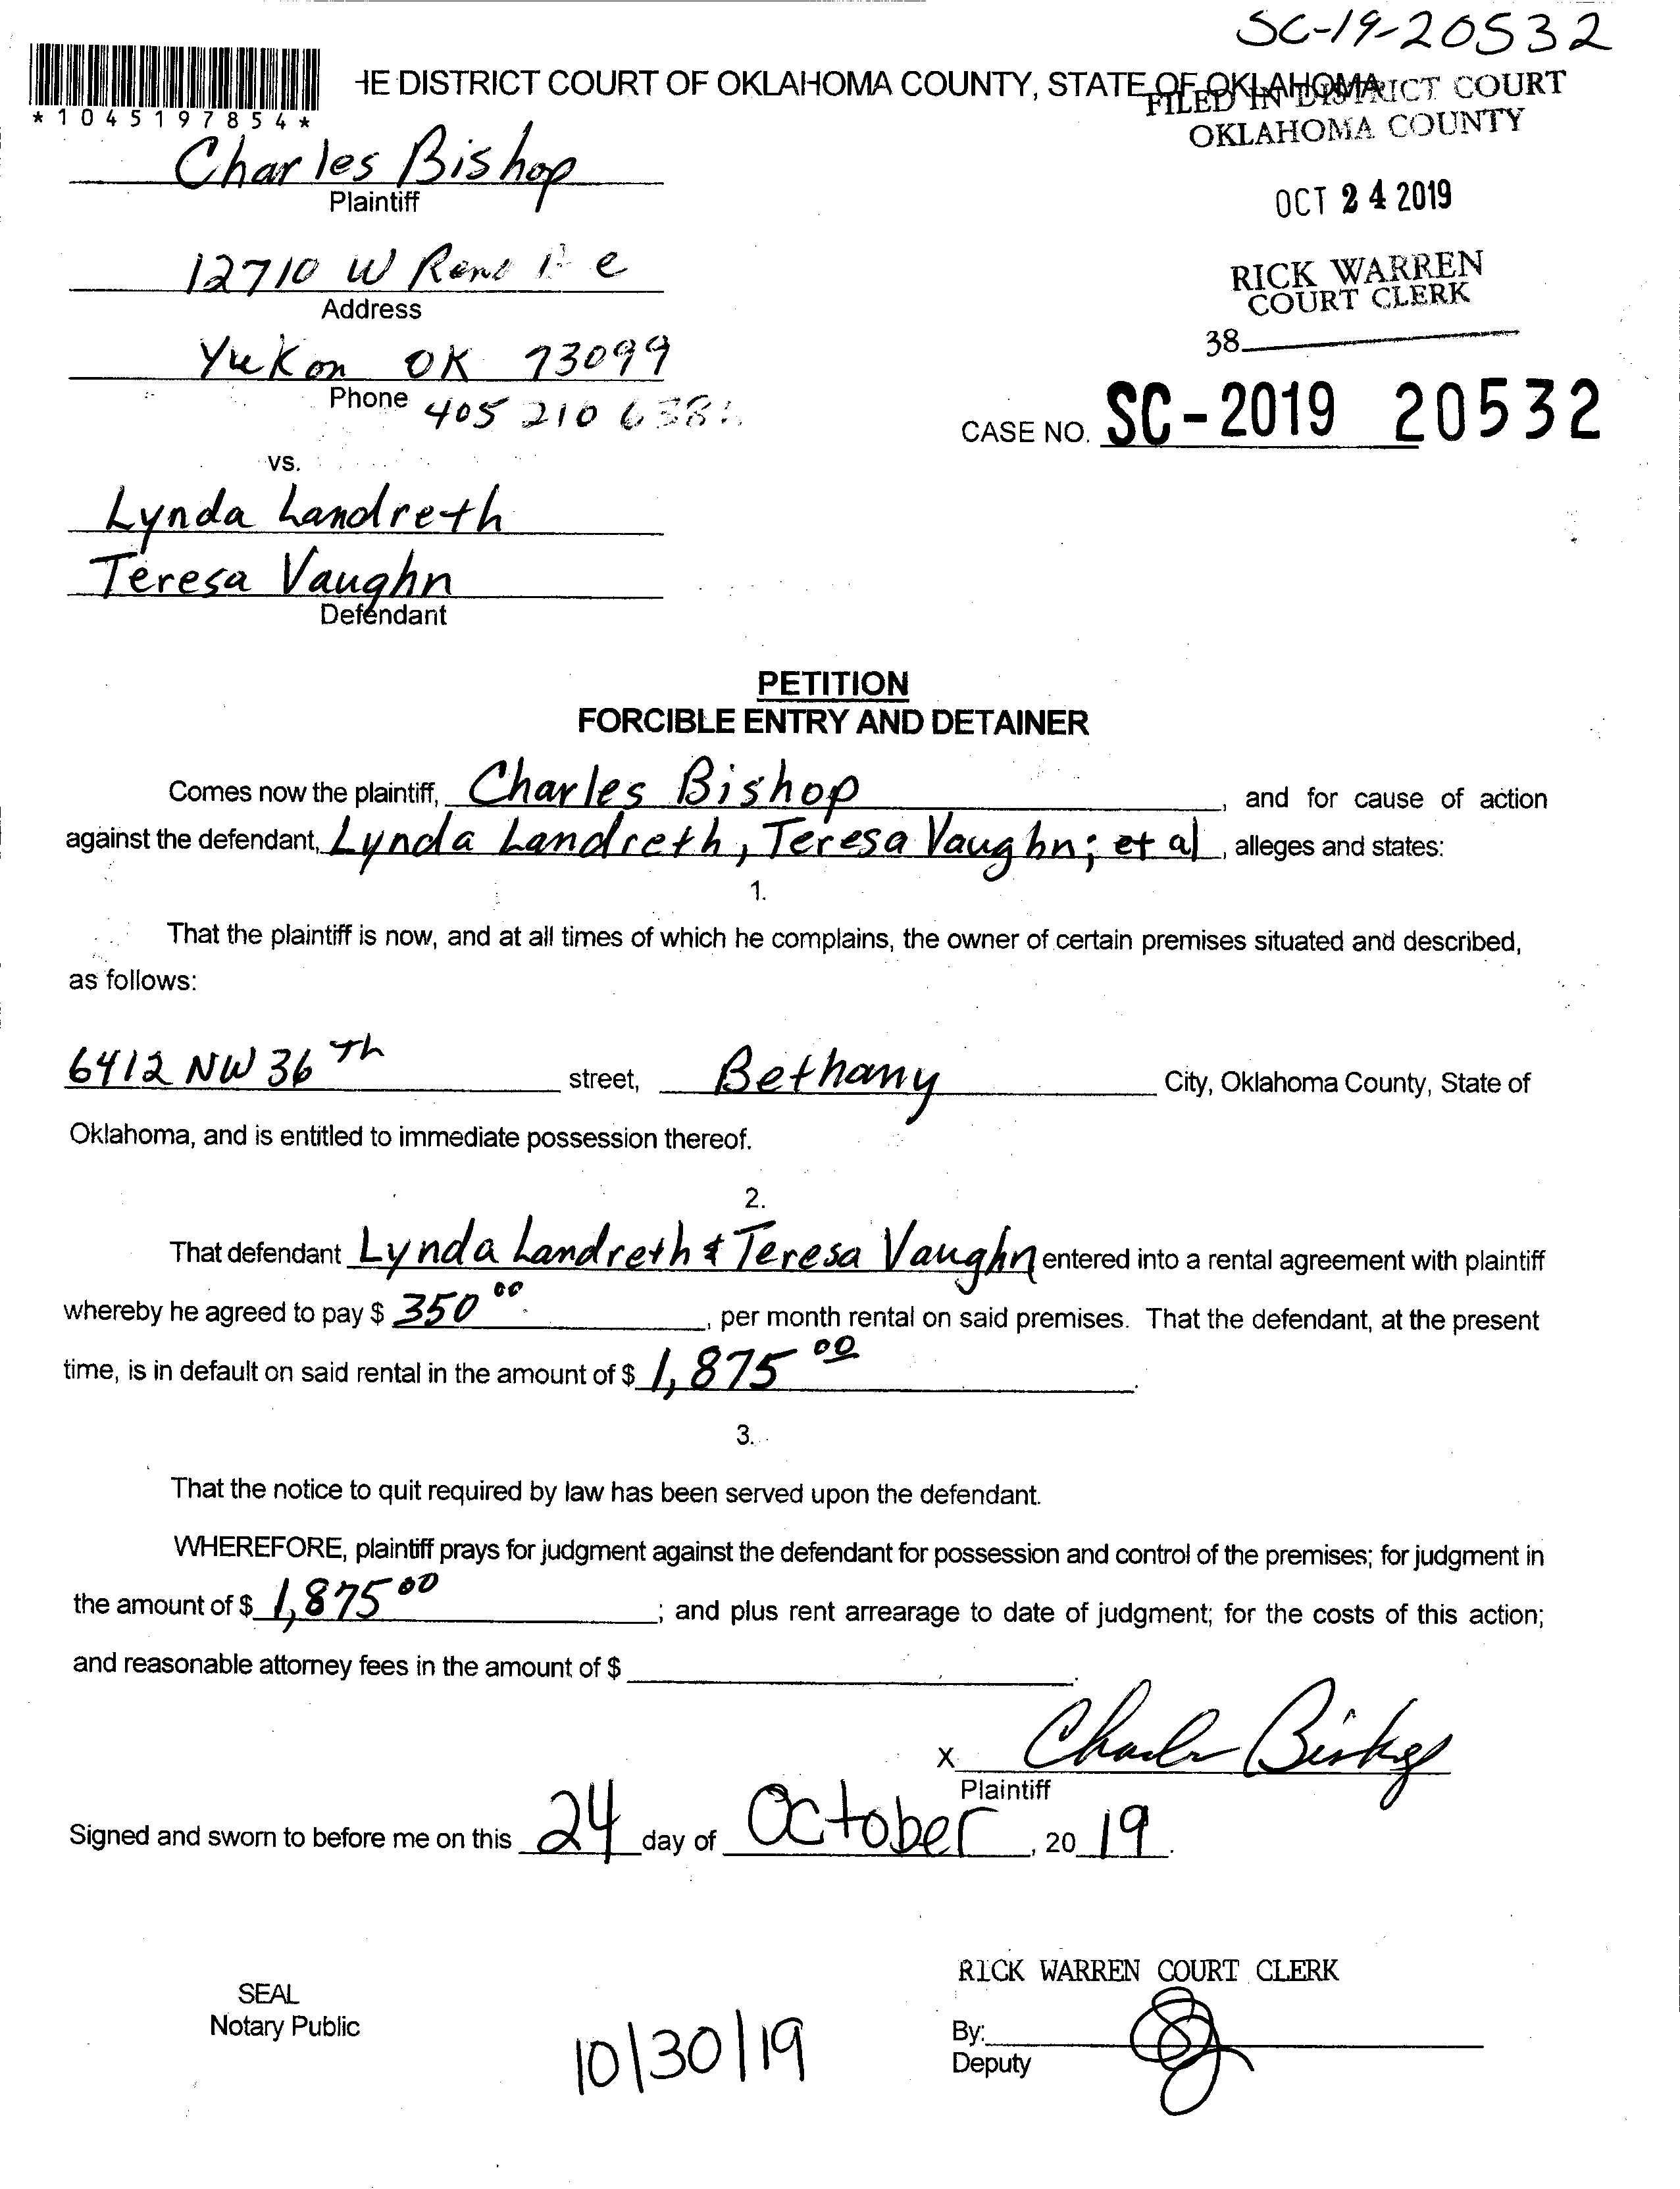 SC-19-20532
*1045197854*
HE DISTRICT COURT OF OKLAHOMA COUNTY, STATE OF OKLAHOMA
FILED IN DISTRICT COURT
OKLAHOMA COUNTY
Charles Bishop
Plaintiff
OCT 24 2019
12710 W Reno
Address
RICK WARREN
COURT CLERK
38
Yukon OK 73099
Phone 405 210
CASE NO. SC-2019 20532
vs.
Lynda Landreth
Teresa Vaughn
Defendant
PETITION
FORCIBLE ENTRY AND DETAINER
Comes now the plaintiff, Charles Bishop, and for cause of action
against the defendant, Lynda Landreth, Teresa Vaughn; et al, alleges and states:
1.
That the plaintiff is now, and at all times of which he complains, the owner of certain premises situated and described,
as follows:
6412 NW 36 Th street, Bethany City, Oklahoma County, State of
Oklahoma, and is entitled to immediate possession thereof.
2.
That defendant Lynda Landreth & Teresa Vaughn entered into a rental agreement with plaintiff
whereby he agreed to pay $ 350 00, per month rental on said premises. That the defendant, at the present
time, is in default on said rental in the amount of $ 1,875 00.
3.
That the notice to quit required by law has been served upon the defendant.
WHEREFORE, plaintiff prays for judgment against the defendant for possession and control of the premises; for judgment in
the amount of $ 1,875 00; and plus rent arrearage to date of judgment; for the costs of this action;
and reasonable attorney fees in the amount of $
X Charles Bishop
Plaintiff
Signed and sworn to before me on this 24 day of October, 2019.
RICK WARREN COURT CLERK
SEAL
Notary Public
10/30/19
By:
Deputy